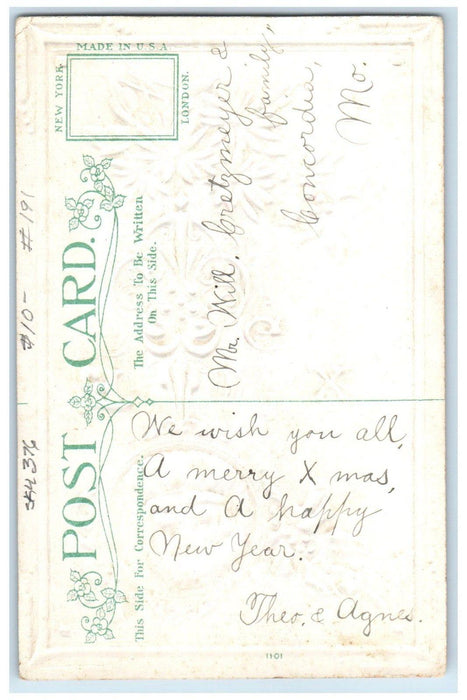 #4376 $10- #191
POST CARD.
MADE IN U.S.A.
NEW YORK
LONDON.
This Side For Correspondence.
The Address To Be Written
On This Side.
We wish you all,
A merry X mas,
and A happy
New Year.
Theo. & Agnes.
Mr. Will. Cretzmeyer &
family,
Concordia,
Mo.
1101